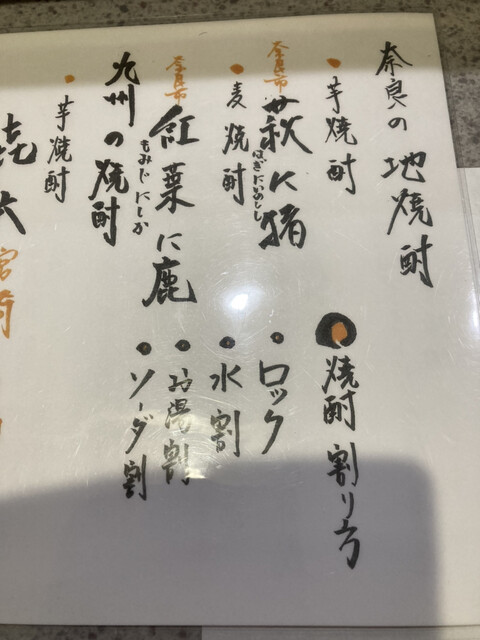 奈良の地焼酎
芋焼酎
奈良市
萩に猪
はぎにいのしし
麦焼酎
奈良市
紅葉に鹿
もみじにしか
九州の焼酎
芋焼酎
㐂六
宮崎
焼酎割り方
ロック
水割
お湯割
ソーダ割